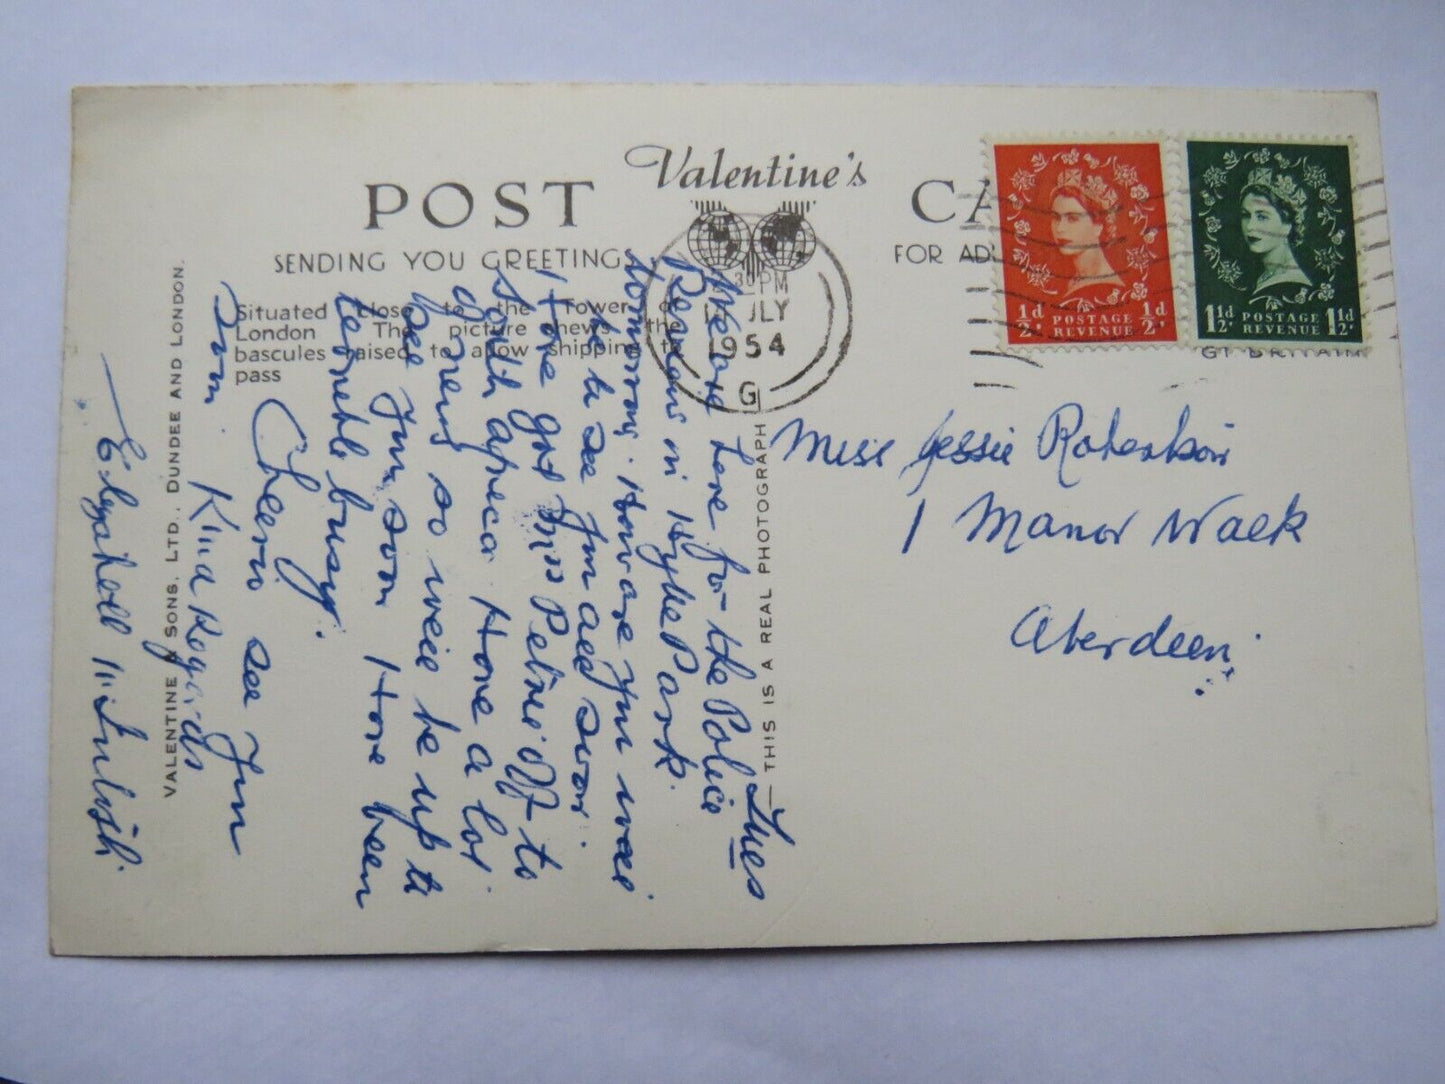 POST
Valentine's
CA
SENDING YOU GREETINGS
FOR AD
Situated close to the Tower of
London The picture shews the
bascules raised to allow shipping to
pass
30 PM
JLY
1954
G
½d POSTAGE REVENUE ½d
1½d POSTAGE REVENUE 1½d
GT BRITAIN
VALENTINE & SONS. LTD., DUNDEE AND LONDON.
THIS IS A REAL PHOTOGRAPH
Miss Jessie Robertson
1 Manor Walk
Aberdeen.
Tues
We are here for the Police
Review in Hyde Park
tomorrow. How are you
to see you all soon
Have got Miss Petrie off to
South Africa. Have a lot
going so will be up to
see you soon. Have been
terrible busy.
Cheerio see you
soon. Kind Regards
Elizabeth